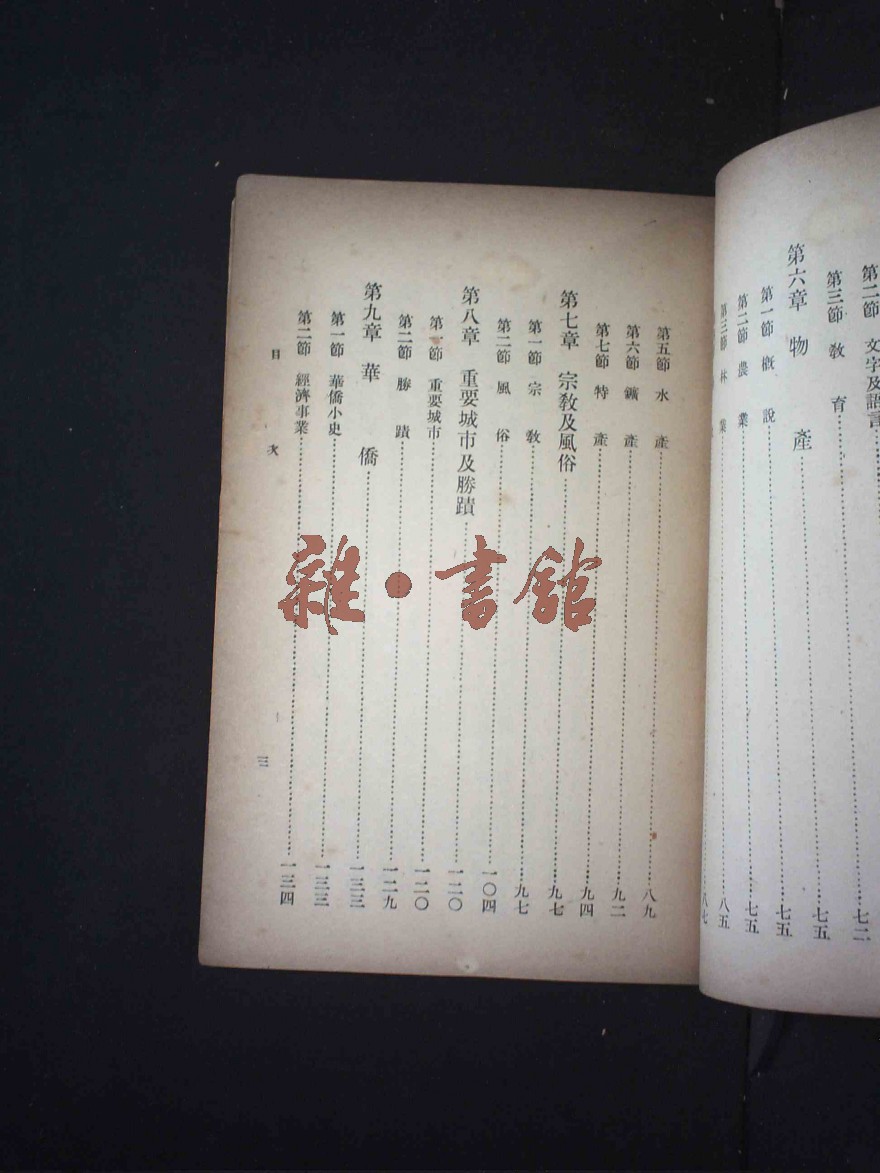 第二節 文字及語言……七二
第三節 敎育……七五
第六章 物產……七五
第一節 槪說……七五
第二節 農業……七五
第三節 林業……八五
八七
第五節 水產……八九
第六節 鑛產……九二
第七節 特產……九四
第七章 宗敎及風俗……九七
第一節 宗敎……九七
第二節 風俗……一〇四
第八章 重要城市及勝蹟……一二〇
第一節 重要城市……一二〇
第二節 勝蹟……一二九
第九章 華僑……一三三
第一節 華僑小史……一三三
第二節 經濟事業……一三四
目次
三
雜·書館